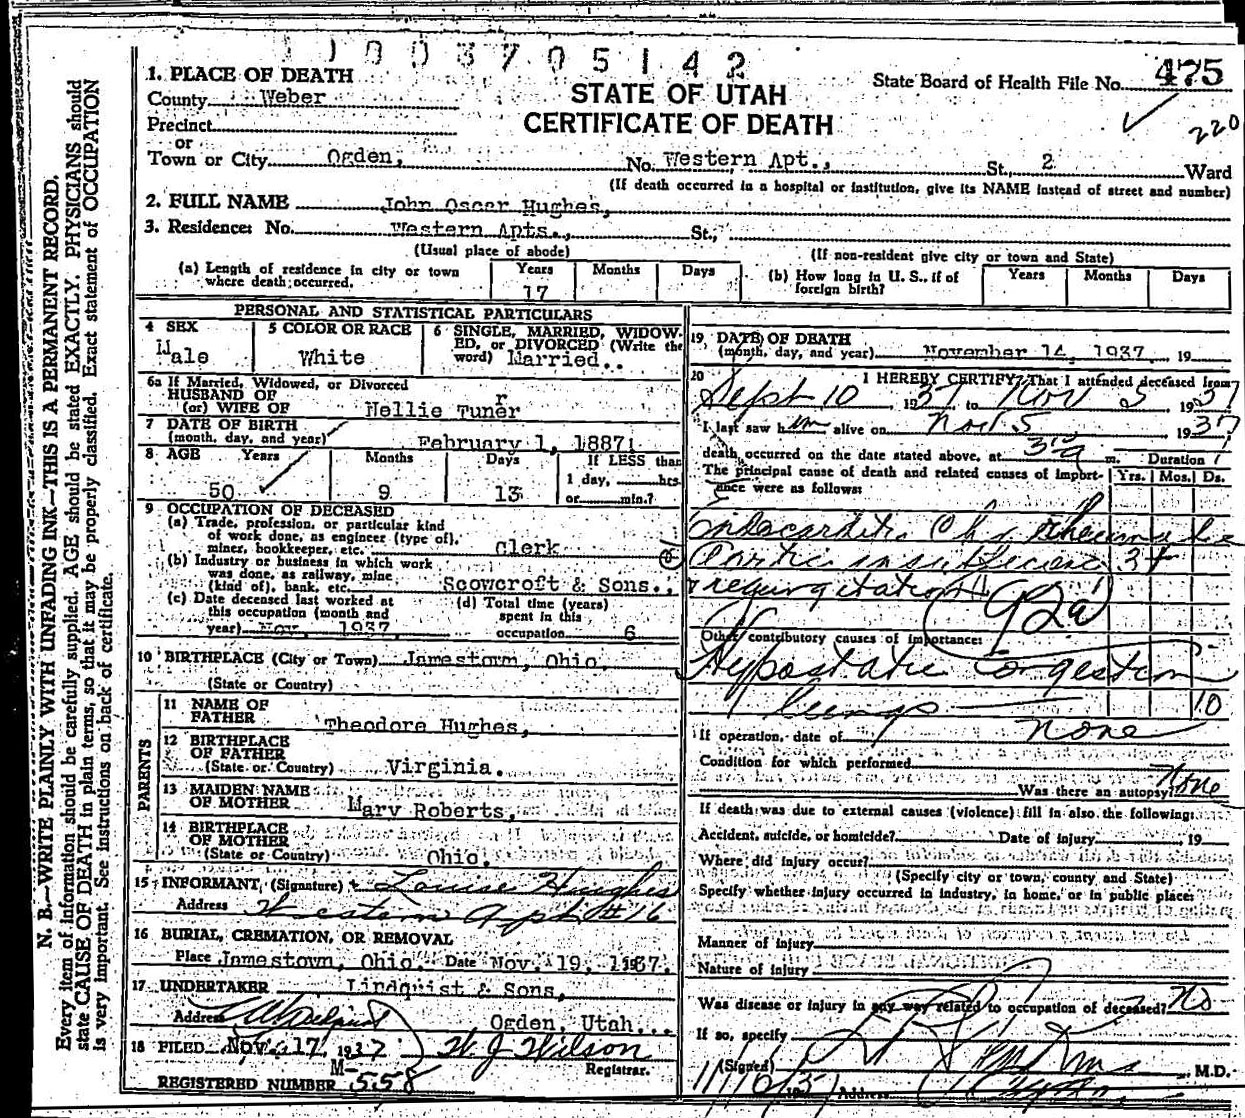 1003705142
State Board of Health File No. 475
220
STATE OF UTAH
CERTIFICATE OF DEATH
1. PLACE OF DEATH
County Weber
Precinct
or
Town or City Ogden, No. Western Apt., St., 2 Ward
(If death occurred in a hospital or institution, give its NAME instead of street and number)
2. FULL NAME John Oscar Hughes,
3. Residence: No. Western Apts., St.,
(Usual place of abode) (If non-resident give city or town and State)
(a) Length of residence in city or town where death occurred. Years 17 Months Days
(b) How long in U. S., if of foreign birth? Years Months Days
PERSONAL AND STATISTICAL PARTICULARS
4 SEX Male
5 COLOR OR RACE White
6 SINGLE, MARRIED, WIDOWED, or DIVORCED (Write the word) Married..
6a If Married, Widowed, or Divorced
HUSBAND OF
(or) WIFE OF Nellie Tuner r
7 DATE OF BIRTH
(month, day, and year) February 1, 1887.
8 AGE Years 50 Months 9 Days 13
If LESS than 1 day, hrs. or min.?
9 OCCUPATION OF DECEASED
(a) Trade, profession, or particular kind
of work done, as engineer (type of),
miner, bookkeeper, etc. Clerk
(b) Industry or business in which work
was done, as railway, mine
(kind of), bank, etc. Scowcroft & Sons.,
(c) Date deceased last worked at
this occupation (month and
year) Nov., 1937.
(d) Total time (years)
spent in this
occupation 6
10 BIRTHPLACE (City or Town) Jamestown, Ohio.
(State or Country)
PARENTS
11 NAME OF
FATHER Theodore Hughes,
12 BIRTHPLACE
OF FATHER
(State or Country) Virginia.
13 MAIDEN NAME
OF MOTHER Mary Roberts,
14 BIRTHPLACE
OF MOTHER
(State or Country) Ohio.
15 INFORMANT, (Signature) Louise Hughes
Address Western Apt #16
16 BURIAL, CREMATION, OR REMOVAL
Place Jamestown, Ohio. Date Nov. 19, 1937.
17 UNDERTAKER Lindquist & Sons,
Address Ogden, Utah...
18 FILED Nov. 17, 1937 W. J. Wilson
Registrar.
M-
REGISTERED NUMBER 558
19 DATE OF DEATH
(month, day, and year) November 14, 1937. 19
20 I HEREBY CERTIFY, That I attended deceased from
Sept 10 1937 to Nov 5 1937
I last saw him alive on Nov 5 1937
death occurred on the date stated above, at 3 a m. Duration
The principal cause of death and related causes of importance were as follows: Yrs. Mos. Ds.
Endocarditis Chr. rheumatic
Aortic insufficiency 3+
regurgitation
92a
Other contributory causes of importance:
Hypostatic Congestion
lungs 10
If operation, date of none
Condition for which performed
Was there an autopsy? None
If death was due to external causes (violence) fill in also the following:
Accident, suicide, or homicide? Date of injury 19
Where did injury occur?
(Specify city or town, county and State)
Specify whether injury occurred in industry, in home, or in public place:
Manner of injury
Nature of injury
Was disease or injury in any way related to occupation of deceased? No
If so, specify
(Signed) M.D.
Address Ogden
N. B.—WRITE PLAINLY WITH UNFADING INK—THIS IS A PERMANENT RECORD.
Every item of information should be carefully supplied. AGE should be stated EXACTLY. PHYSICIANS should
state CAUSE OF DEATH in plain terms, so that it may be properly classified. Exact statement of OCCUPATION
is very important. See instructions on back of certificate.